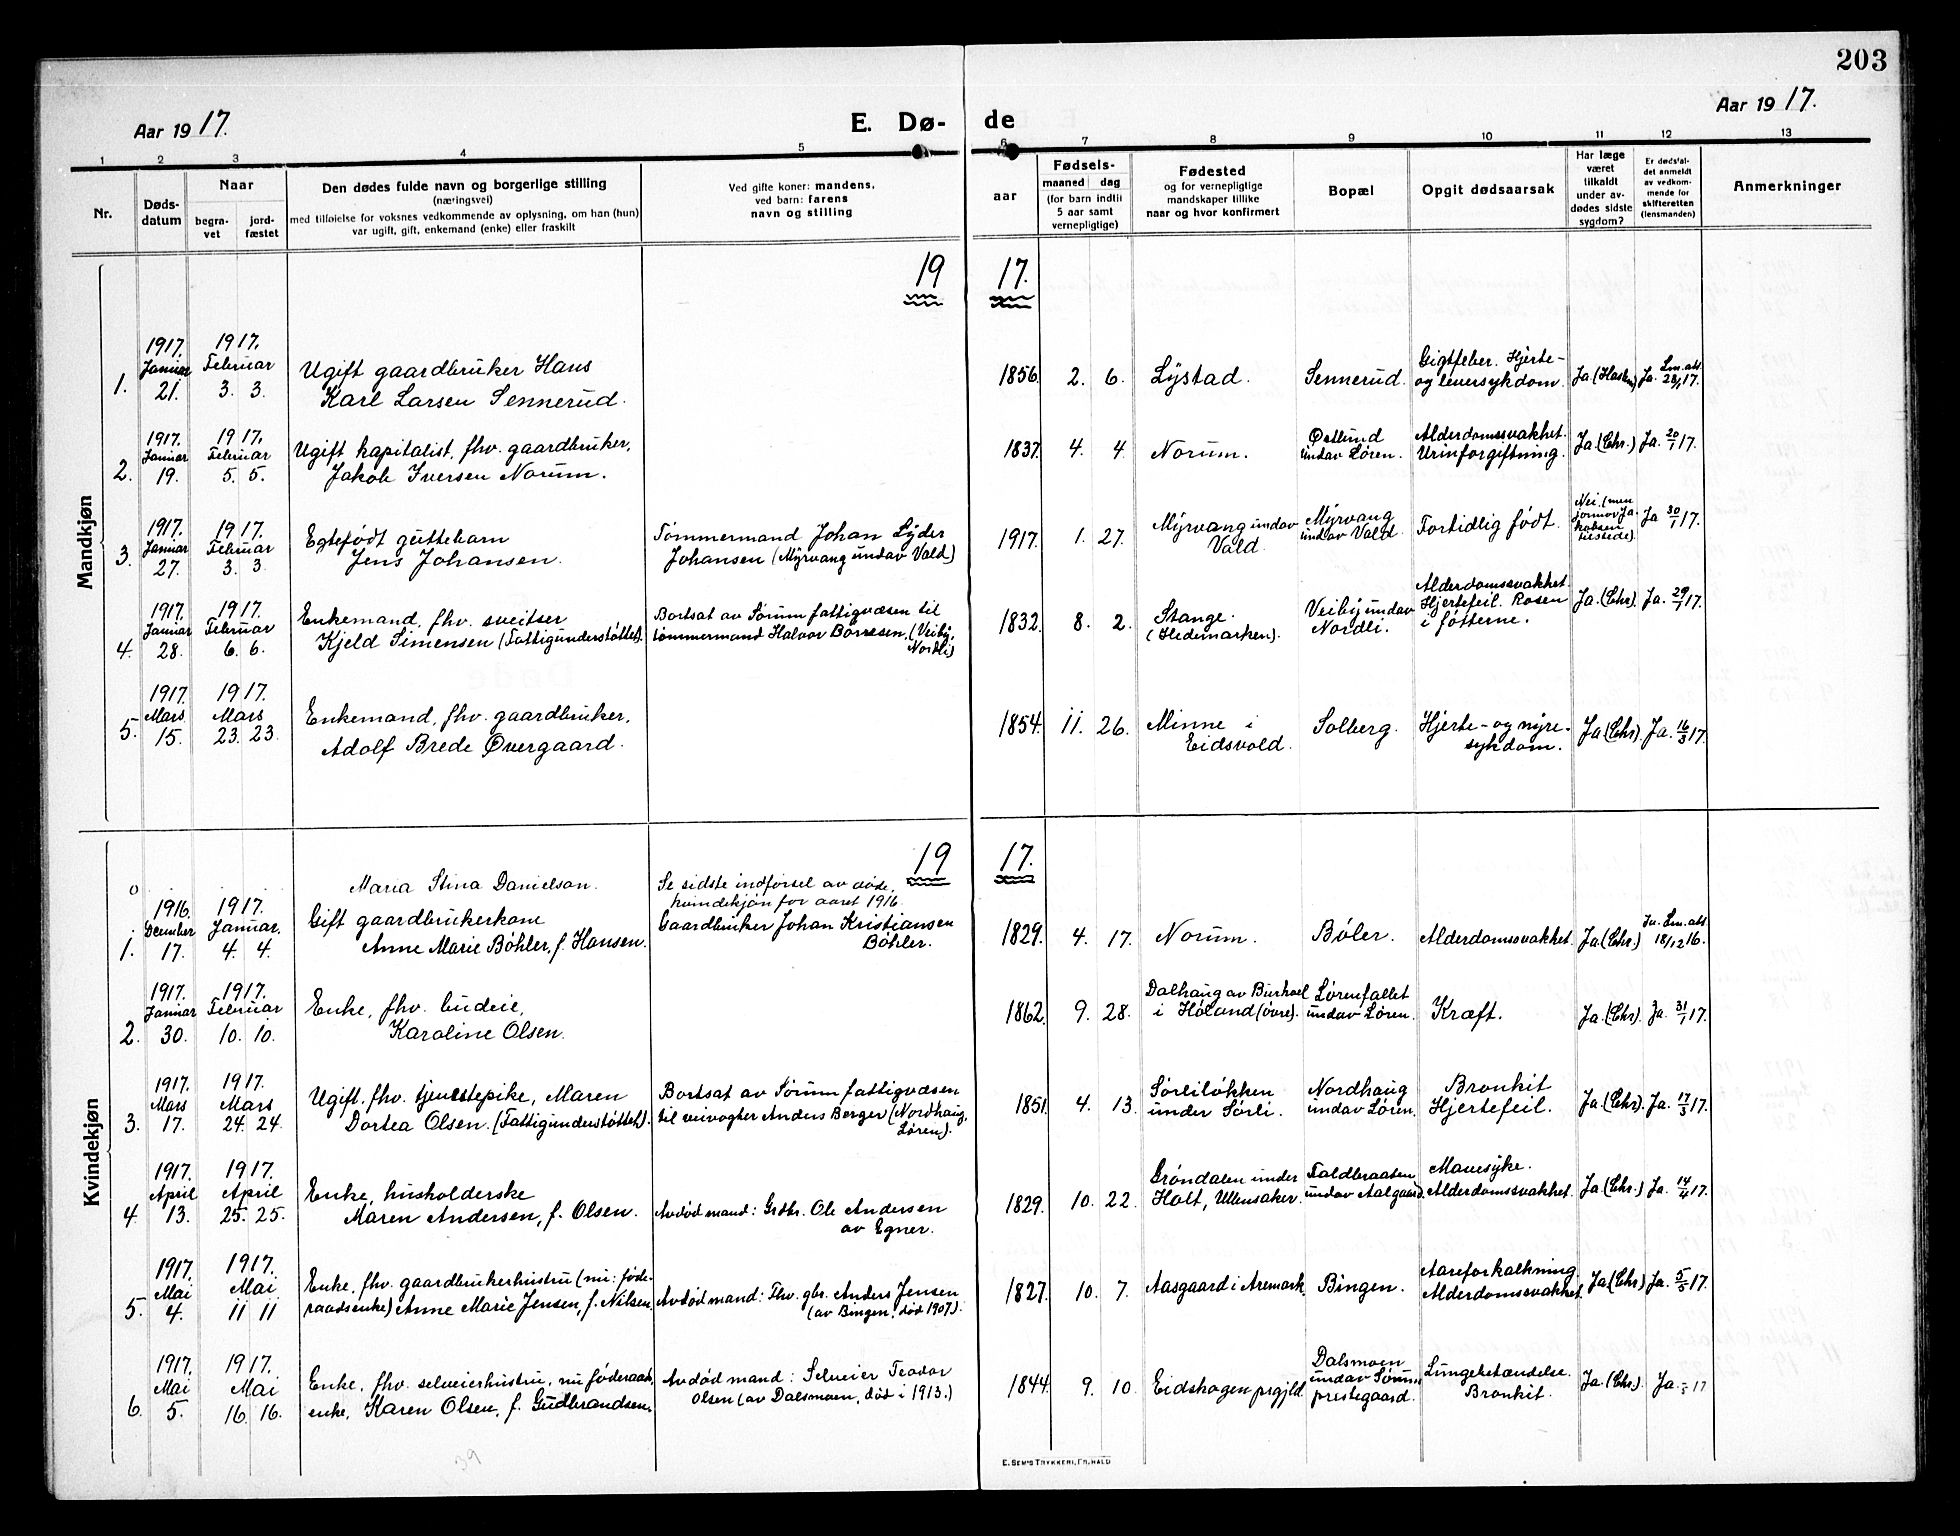 203
Aar 1917.
E. Dø-
de
Aar 1917.
1 2 3 4 5 6 7 8 9 10 11 12 13
Nr.
Døds-
datum
Naar
begra-
vet
jord-
fæstet
Den dødes fulde navn og borgerlige stilling
(næringsvei)
med tilføielse for voksnes vedkommende av oplysning, om han (hun)
var ugift, gift, enkemand (enke) eller fraskilt
Ved gifte koner: mandens,
ved barn: farens
navn og stilling
Fødsels-
aar
maaned dag
(for barn indtil
5 aar samt
vernepligtige)
Fødested
og for vernepligtige
mandskaper tillike
naar og hvor konfirmert
Bopæl
Opgit dødsaarsak
Har læge
været
tilkaldt
under av-
dødes sidste
sygdom?
Er dødsfal-
det anmeldt
av vedkom-
mende for
skifteretten
(lensmanden)
Anmerkninger
Mandkjøn
19 17.
1.
1917.
Januar
21.
1917.
Februar
3. 3.
Ugift gaardbruker Hans
Karl Larsen Sennerud.
1856. 2. 6.
Lystad.
Sennerud.
Gigtfeber. Hjerte-
og leversykdom.
Ja
Ja. Lm. att.
17.
2.
1917.
Januar
19.
1917.
Februar
5. 5.
Ugift kapitalist, fhv. gaardbruker,
Jakob Iversen Norum.
1837. 4. 4.
Norum.
Østlund
undav Løren.
Alderdomssvakhet.
Urinforgiftning.
Ja (Chr.)
Ja. 20/1 17.
3.
1917.
Januar
27.
1917.
Februar
3. 3.
Egtefødt guttebarn
Jens Johansen.
Tømmermand Johan Lyder
Johansen (Myrvang undav Vald)
1917. 1. 27.
Myrvang undav
Vald.
Myrvang
undav Vald.
Fortidlig født.
Nei. (men
jormor Ja-
kobsen
tilstede).
Ja 30/1 17.
4.
1917.
Januar
28.
1917.
Februar
6. 6.
Enkemand, fhv. sveitser
Kjeld Simensen (Fattigunderstøttet).
Bortsat av Sørum fattigvæsen til
tømmermand Halvor Børresen. (Veiby,
Nordli)
1832. 8. 2.
Stange.
(Hedemarken).
Veiby undav
Nordli.
Alderdomssvakhet.
Hjertefeil. Rosen
i føtterne.
Ja. (Chr).
Ja. 29/1 17.
5.
1917.
Mars
15.
1917.
Mars
23. 23.
Enkemand, fhv. gaardbruker,
Adolf Brede Øvergaard.
1854. 11. 26.
Minne i
Eidsvold.
Solberg.
Hjerte- og nyre-
sykdom.
Ja (Chr).
Ja. 16/3 17.
Kvindekjøn
19 17.
0
Maria Stina Danielson.
Se sidste indførsel av døde,
kvindekjøn for aaret 1916.
1.
1916.
December
17.
1917.
Januar.
4. 4.
Gift gaardbrukerkone
Anne Marie Bøhler, f. Hansen.
Gaardbruker Johan Kristiansen
Bøhler.
1829. 4. 17.
Norum.
Bøler.
Alderdomssvakhet.
Ja (Chr.)
Ja. Lm. att.
18/12 16.
2.
1917.
Januar
30.
1917.
Februar
10. 10.
Enke, fhv. budeie,
Karoline Olsen.
1862. 9. 28.
Dalhaug av Burhoel
i Høland (øvre).
Lørenfallet
undav Løren.
Kræft.
Ja. (Chr).
Ja. 31/1 17.
3.
1917.
Mars
17.
1917.
Mars
24. 24.
Ugift. fhv. tjenestepike, Maren
Dortea Olsen. (Fattigunderstøttet).
Bortsat av Sørum fattigvæsen
til veivogter Anders Berger (Nordhaug,
Løren).
1851. 4. 13.
Sørliløkken
under Sørli.
Nordhaug
undav Løren.
Bronkit
Hjertefeil.
Ja (Chr).
Ja. 17/3 17.
4.
1917.
April
13.
1917.
April
25. 25.
Enke, husholderske
Maren Andersen, f. Olsen.
Avdød mand: Grdbr. Ole Andersen
av Egner.
1829. 10. 22.
Grøndalen under
Holt, Ullensaker.
Faldbraaten
undav Aalgaard.
Mavesyke.
Alderdomssvakhet.
Ja (Chr.)
Ja. 14/4 17.
5.
1917.
Mai
4.
1917.
Mai
11 11
Enke, fhv. gaardbrukerhustru (nu: føde-
raadsenke) Anne Marie Jensen, f. Nilsen,
Avdød mand: Fhv. gbr. Anders Jensen
(av Bingen, død 1907).
1827. 10. 7.
Aasgaard i Aremark
Bingen.
Aareforkalkning
Alderdomssvakhet.
Ja (Chr)
Ja. 5/5 17.
6.
1917.
Mai
5.
1917.
Mai
16. 16.
Enke, fhv. selveierhustru, nu føderaads
enke, Karen Olsen, f. Gudbrandsen,
Avdød mand: Selveier Teodor
Olsen (av Dalsmoen, død i 1913.)
1844. 9. 10.
Eidskogen prgjld.
Dalsmoen
undav Sørum
prestegaard.
Lungebetændelse.
Bronkit.
Ja. (Chr).
Ja. 17
39
E. SEM'S TRYKKERI, FR.HALD